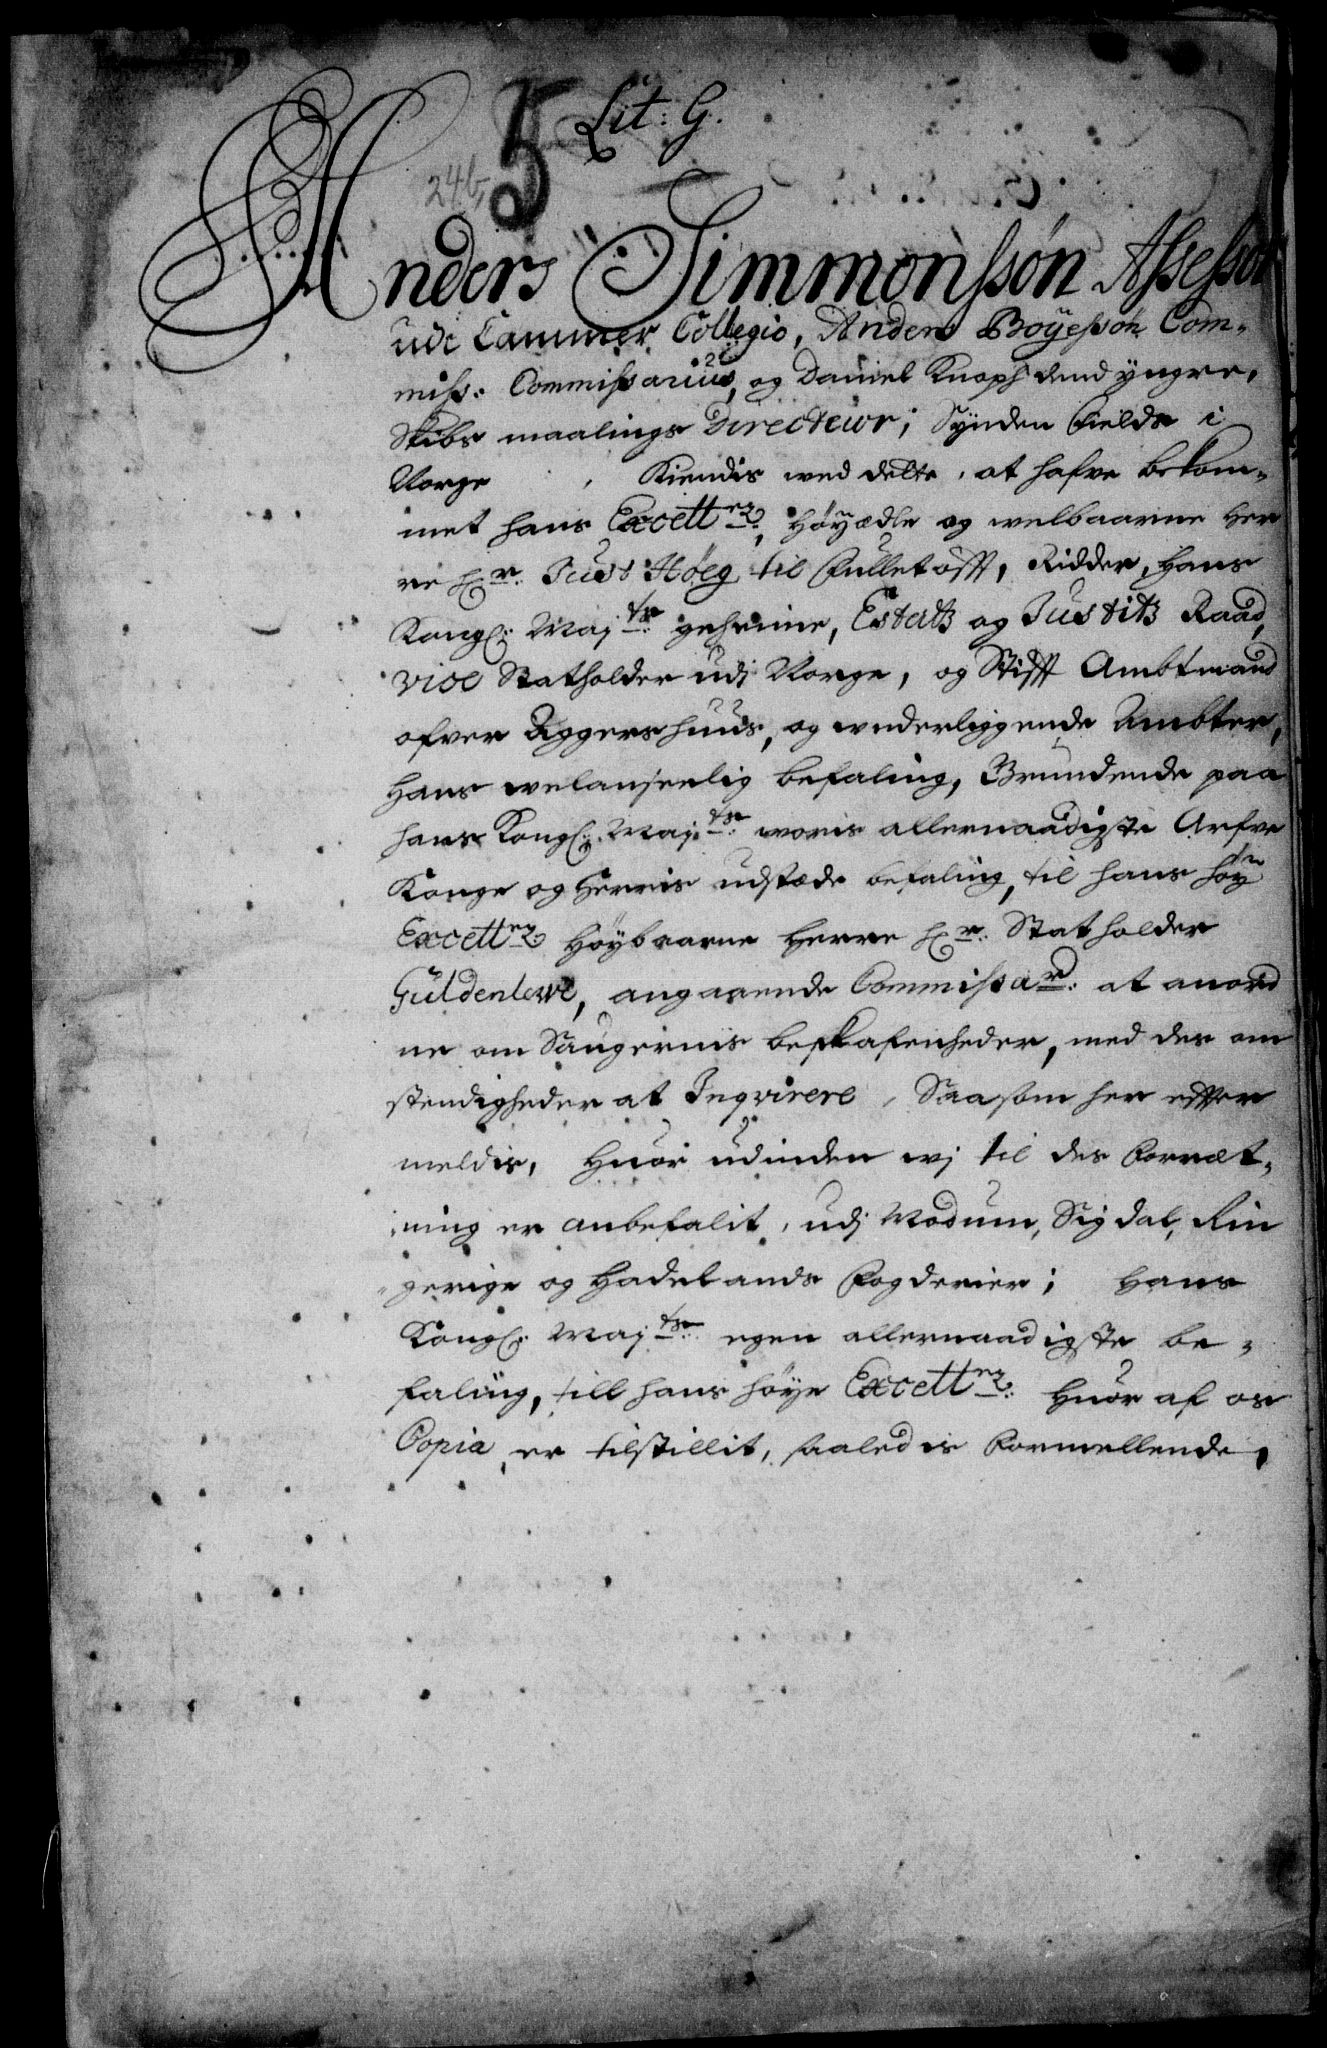 5 Lit: G.
246,
Anders Simmonssøn Assessor
udi Cammer Collegio, Anders Boÿessøn Com-
miss: Commissarius, og Daniel Knoph dend ÿngre,
Skibs maalings Directeur; Sÿnden Fields i
Norge, Kiendis med dette, at hafve bekom-
met hans Excellz. Høÿædle og welbaarne Her
re Hr. Just Høeg til Fulletofft, Ridder, Hans
Kongl: Maj:ts geheime, Estatz og Justitz Raad,
vice Statholder udj Norge, og Stifft Ambtmand
ofver Aggershuus, og underliggende Ambter,
Hans welanseelig befaling, Grundende paa
hans Kongl: Maj:ts woris allernaadigste Arfve
Konge og Herris udstæde befaling, til hans høÿ
Excellz Høÿbaarne Herre Hr. Statholder
Güldenlewe, angaaende Commissar: at anord
ne om Saugernis beskafenheder, med des om
stendigheder at Inqvirere, Saasom her effter
meldis, Huor udinden wj til des Forræt-
ning er anbefalit, udj Modum, Sigdal, Rin
gerige og Hadelands Fogderier; Hans
Kongl: Maj:ts egen allernaadigste be-
faling, till hans høÿe Excellz: Huor af os
Copia er tilstillit, saaledis Formellende,